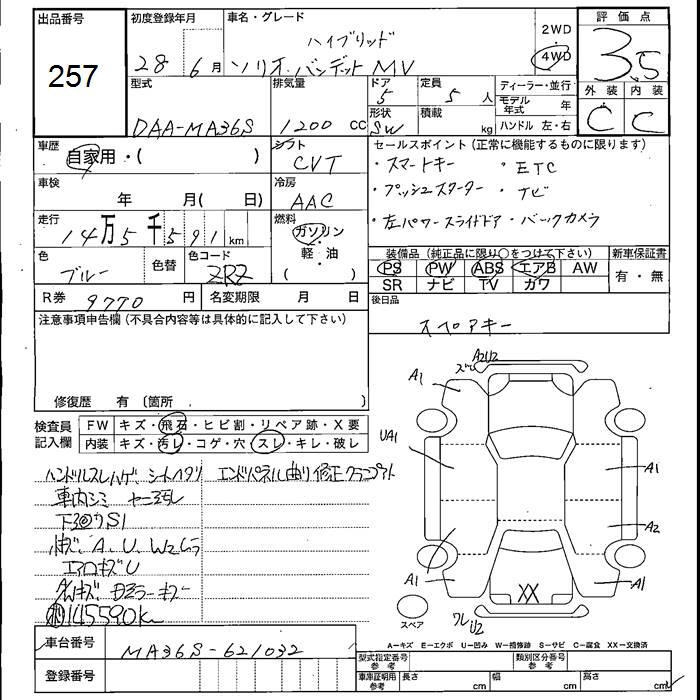 出品番号
257
初度登録年月
28年6月
車名・グレード
ハイブリッド
ソリオ・バンデットMV
2WD
4WD
評価点
3.5
外装 内装
C C
型式
DAA-MA36S
排気量
1200 CC
ドア
5
形状
SW
定員
5人
積載
kg
ディーラー・並行
モデル年式 年
ハンドル 左・右
車歴
自家用・( )
シフト
CVT
セールスポイント(正常に機能するものに限ります)
・スマートキー ・ETC
・プッシュスターター ・ナビ
・左パワースライドドア・バックカメラ
車検
年 月( 日)
冷房
AAC
走行
14万5千591km
燃料
ガソリン
・
軽・油
( )
色
ブルー
色替
色コード
ZRZ
装備品(純正品に限り○をつけて下さい)
PS PW ABS エアB AW
SR ナビ TV カワ
新車保証書
有・無
R券 9770円
名変期限 月 日
後日品
スペアキー
注意事項申告欄(不具合内容等は具体的に記入して下さい)
修復歴 有〔箇所 〕
検査員記入欄
FW キズ・飛石・ヒビ割・リペア跡・X要
内装 キズ・汚レ・コゲ・穴・スレ・キレ・破レ
ハンドルスレハゲ、シートヘタリ
エンドパネル曲り修正
車内シミ
S1
A、U、W2
エアロキズU
145590km
A1
ズレ A2U2
UA1
A1
A2
A1
A1
XX
ワレU2
スペア
A=キズ E=エクボ U=凹み W=補修跡 S=サビ C=腐食 XX=交換済
車台番号
MA36S-621032
登録番号
型式指定番号 参考
類別区分番号 参考
車庫証明用 参考
長さ cm
幅 cm
高さ cm